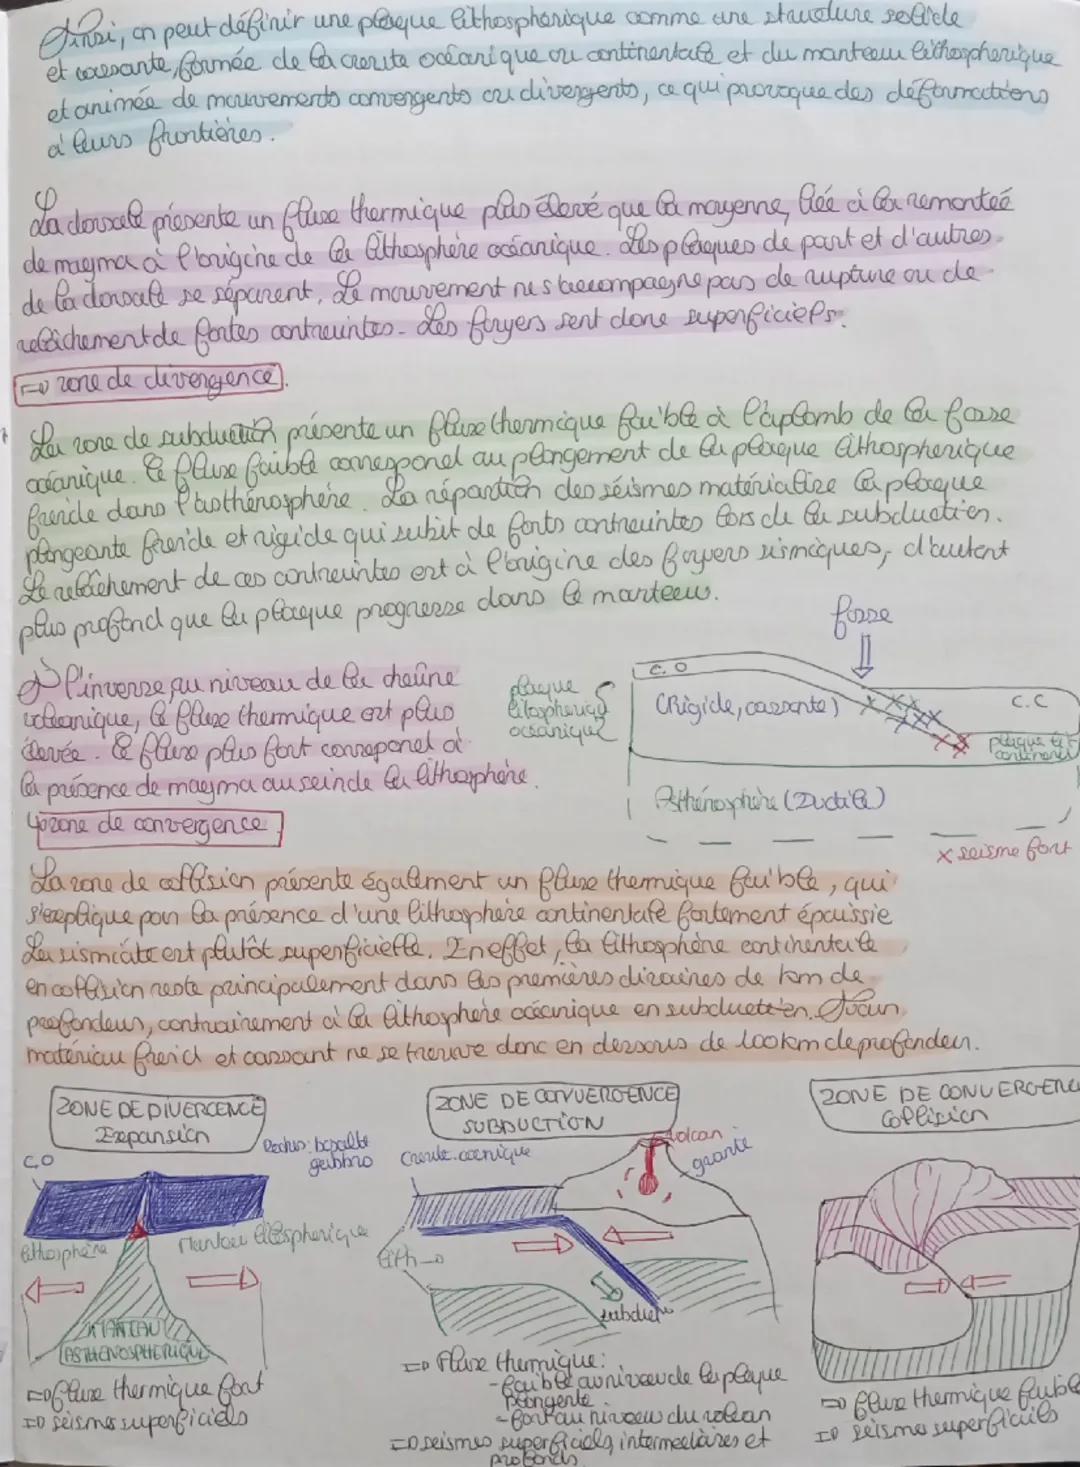 Ainsi, on peut définir une plaque lithosphérique comme une structure solide
et cassante, formée de la croûte océanique ou continentale et du manteau lithospherique
et animée de mouvements convergents ou divergents, ce qui provoque des déformations
à leurs frontières.
La dorsale présente un fluxe thermique plus élevé que la moyenne, liée à la remonteé
de magma à l'origine de la lithosphère océanique. Les plaques de part et d'autres
de la dorsale se séparent. Le mouvement ne s'accompagne pas de rupture ou de
relâchement de fortes contraintes. Les foyers sont donc superficiels.
=> zone de divergence.
La zone de subduction présente un fluxe thermique faible à l'aplomb de la fosse
océanique. Ce fluxe faible correspond au plongement de la plaque lithospherique
froide dans l'asthénosphère. La répartition des séismes matérialize la plaque
plongeante froide et rigide qui subit de forts contraintes lors de la subduction.
Le relâchement de ces contraintes est à l'origine des foyers sismiques, d'autant
plus profond que la plaque progresse dans le manteau.
fosse
A l'inverse au niveau de la chaîne
volcanique, le fluxe thermique est plus
élevée. Ce fluxe plus fort correspond à
la présence de magma au sein de la lithosphère.
↳ zone de convergence
C.O
plaque
océanique
(Rigide, cassante)
C.C
plaque lit
continental
Asthénosphère (Ductile)
x seisme fort
La zone de collision présente également un fluxe thermique faible, qui
s'explique par la présence d'une lithosphère continentale fortement épaissie
La sismicité est plutôt superficielle. En effet, la lithosphère continentale
en collision reste principalement dans les premières dizaines de km de
profondeur, contrairement à la lithosphère océanique en subduction. Aucun
matériau froid et cassant ne se trouve donc en dessous de 100km de profondeur.
ZONE DE DIVERGENCE
Expansion
C,O
Roches: basalte
gabbro
lithosphère
Manteau lithospherique
MANTEAU
ASTHENOSPHERIQUE
=> fluxe thermique fort
=> séismes superficiels
ZONE DE CONVERGENCE
SUBDUCTION
Croute océnique
volcan
granite
lith
=> Fluxe thermique:
- faible au niveau de la plaque
plongente
- fort au niveau du volcan
=> seismes superficiels, intermediaires et
profonds
ZONE DE CONVERGENCE
Collision
=> fluxe thermique faible
=> seisme superficiels